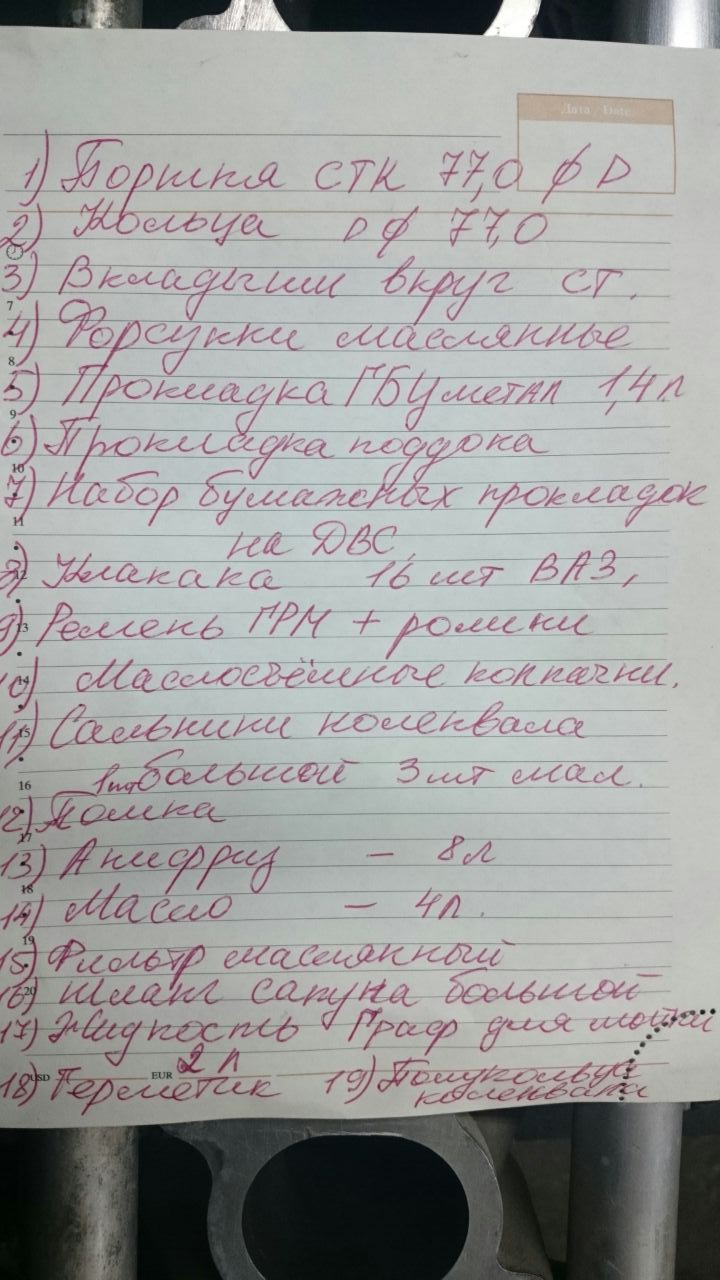 Дата / Date
1) Поршня СТК 77,0 ф D
2) Кольца D ф 77,0
3) Вкладыши вкруг ст.
4) Форсунки маслянные
5) Прокладка ГБЦ метал 1,4 л
6) Прокладка поддона
7) Набор бумажных прокладок
на ДВС,
8) Клапана 16 шт ВАЗ,
9) Ремень ГРМ + ролики
10) Маслосъёмные колпачки.
11) Сальники коленвала
1шт большой 3 шт мал.
12) Помпа
13) Анифриз – 8 л
14) Масло – 4 л.
15) Фильтр маслянный
16) Шланг сапуна большой
17) Жидкость Граф для мойки
2 л
18) Герметик 19) Полукольца
коленвала
7
8
9
10
11
12
13
14
15
16
17
18
19
20
USD EUR